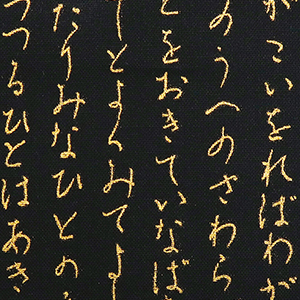 がこいをればわが
のうへのさわら
とをおきていなば
しとよくみてよし
たりみなひとの
つつるひとはあき